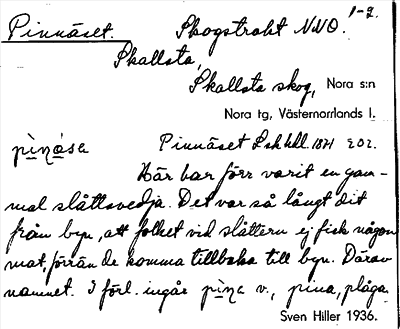 Pinnäset. Skogstrakt NNO. 1-2.
Skallsta,
Skallsta skog, Nora s:n
Nora tg, Västernorrlands l.
Pinnäset Lskhdl. 1871 202.
Här har förr varit en gam-
mal slåttsvedja. Det var så långt dit
från byn, att folket vid slåttern ej fick någon
mat, förrän de komma tillbaka till byn. Därav
namnet. I förl. ingår pina v., pina, plåga.
Sven Hiller 1936.